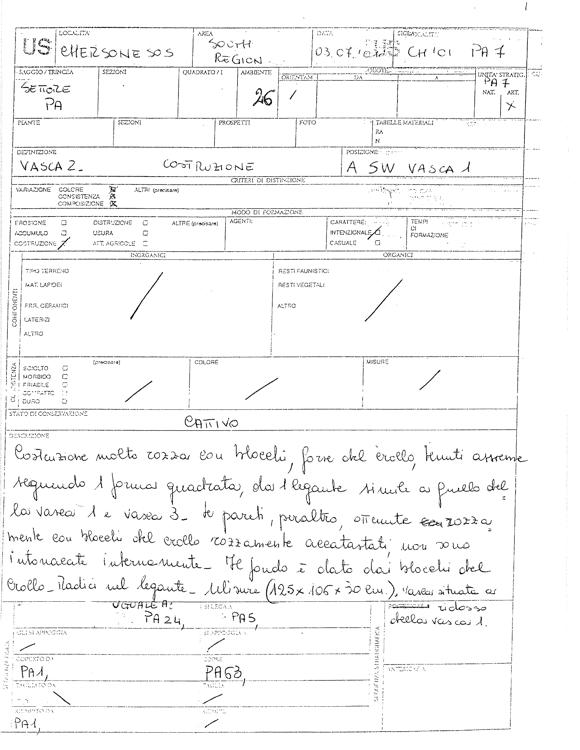 US
LOCALITÀ
CHERSONESOS
AREA
SOUTH REGION
DATA
03.07.
CH'01 PA 7
SAGGIO / TRINCEA
SETTORE PA
SEZIONI
QUADRATO / I
AMBIENTE
26
ORIENTAM.
DA
A
UNITÀ STRATIG.
PA 7
NAT. ART.
X
PIANTE
SEZIONI
PROSPETTI
FOTO
TABELLE MATERIALI
RA
N
DEFINIZIONE
VASCA 2 - COSTRUZIONE
POSIZIONE
A SW VASCA 1
CRITERI DI DISTINZIONE
VARIAZIONE COLORE
CONSISTENZA
COMPOSIZIONE
ALTRI (precisare)
MODO DI FORMAZIONE
EROSIONE
ACCUMULO
COSTRUZIONE
DISTRUZIONE
USURA
ATT. AGRICOLE
ALTRE (precisare)
AGENTE:
CARATTERE:
INTENZIONALE
CASUALE
TEMPI
DI
FORMAZIONE
COMPONENTI
INORGANICI
TIPO TERRENO
MAT. LAPIDEI
FRR. CERAMICI
LATERIZI
ALTRO
ORGANICI
RESTI FAUNISTICI
RESTI VEGETALI
ALTRO
SCIOLTO
MORBIDO
FRIABILE
COMPATTO
DURO
(precisare)
COLORE
MISURE
STATO DI CONSERVAZIONE
CATTIVO
DESCRIZIONE
Costruzione molto rozza con blocchi, forse del crollo, tenuti assieme
seguendo 1 forma quadrata, da 1 legante simile a quello del
la vasca 1 e vasca 3 - le pareti, peraltro, ottenute rozza
mente con blocchi del crollo rozzamente accatastati, non sono
intonacate internamente - Il fondo è dato dai blocchi del
crollo - Radici nel legante - Misure (125 x 106 x 30 cm.), Vasca situata a
ridosso
della vasca 1.
UGUALE A:
PA 24,
SI LEGA
PA5,
GLI SI APPOGGIA
SI APPOGGIA
COPERTO DA
PA1,
COPRE
PA63,
TAGLIATO DA
TAGLIA
PA1,